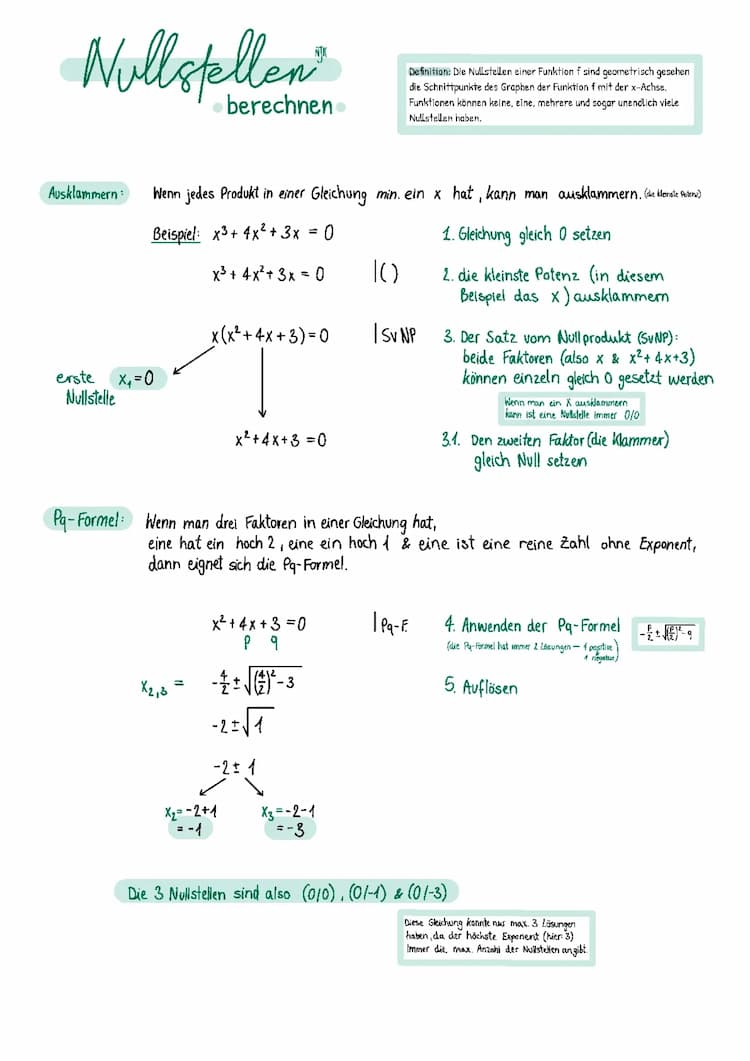 Nullstellen
NJK
berechnen
Definition: Die Nullstellen einer Funktion f sind geometrisch gesehen
die Schnittpunkte des Graphen der Funktion f mit der x-Achse.
Funktionen können keine, eine, mehrere und sogar unendlich viele
Nullstellen haben.
Ausklammern: Wenn jedes Produkt in einer Gleichung min. ein x hat, kann man ausklammern. (die kleinste Potenz)
Beispiel: x³ + 4x² + 3x = 0 1. Gleichung gleich 0 setzen
x³ + 4x² + 3x = 0 |() 2. die kleinste Potenz (in diesem
Beispiel das x) ausklammern
x(x² + 4x + 3) = 0 | SvNP 3. Der Satz vom Nullprodukt (SvNP):
beide Faktoren (also x & x² + 4x+3)
können einzeln gleich 0 gesetzt werden
erste x₁ = 0
Nullstelle
Wenn man ein X ausklammern
kann ist eine Nullstelle immer 0/0
x² + 4x + 3 = 0 3.1. Den zweiten Faktor (die Klammer)
gleich Null setzen
Pq-Formel: Wenn man drei Faktoren in einer Gleichung hat,
eine hat ein hoch 2, eine ein hoch 1 & eine ist eine reine Zahl ohne Exponent,
dann eignet sich die Pq-Formel.
x² + 4x + 3 = 0 | Pq-F. 4. Anwenden der Pq-Formel -p/2 ± √(p/2)² - q
p q (die Pq-Formel hat immer 2 Lösungen – 1 positive
1 negative)
x₂,₃ = -4/2 ± √(4/2)² - 3 5. Auflösen
-2 ± √1
-2 ± 1
x₂ = -2+1 x₃ = -2-1
= -1 = -3
Die 3 Nullstellen sind also (0/0), (0/-1) & (0/-3)
Diese Gleichung konnte nur max. 3 Lösungen
haben, da der höchste Exponent (hier 3)
immer die max. Anzahl der Nullstellen angibt.